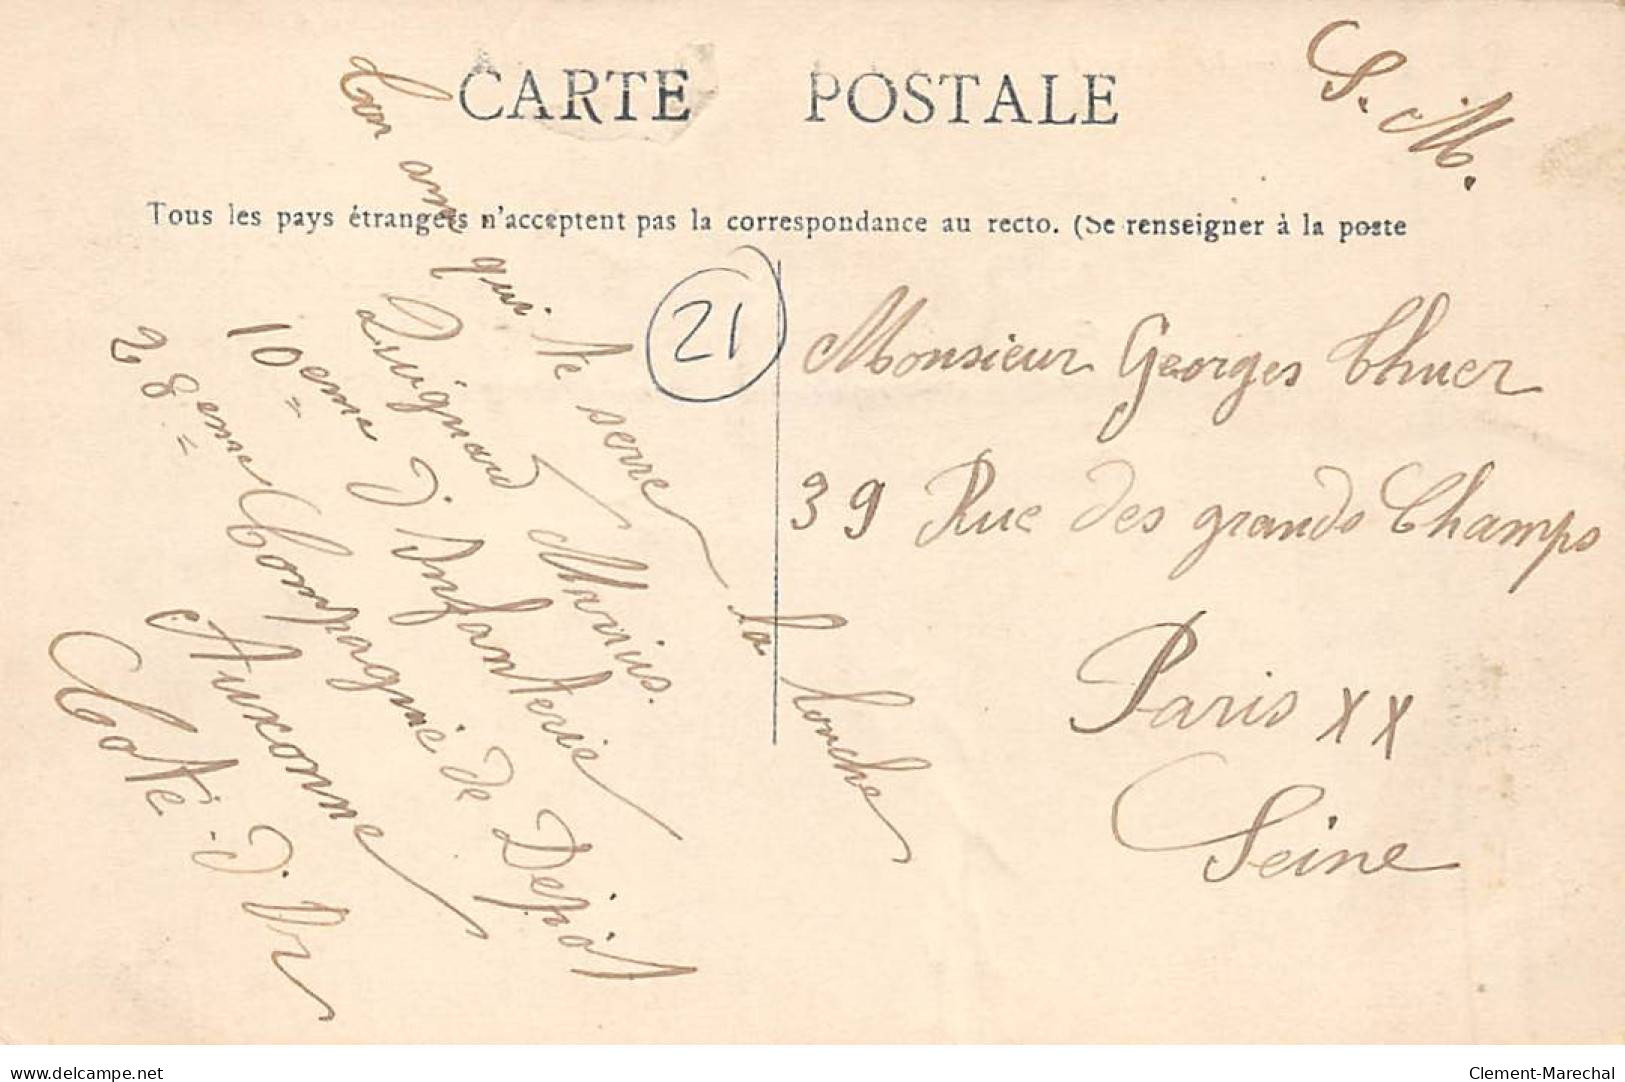 CARTE POSTALE
S. M.
Tous les pays étrangers n'acceptent pas la correspondance au recto. (Se renseigner à la poste
21
ami qui te serre la louche
Quignard Marius.
10eme d'Infanterie
28eme Compagnie de Depôt
Auxonne
Côte-d'Or
Monsieur Georges Thuer
39 Rue des grands Champs
Paris XX
Seine
www.delcampe.net
Clement-Marechal